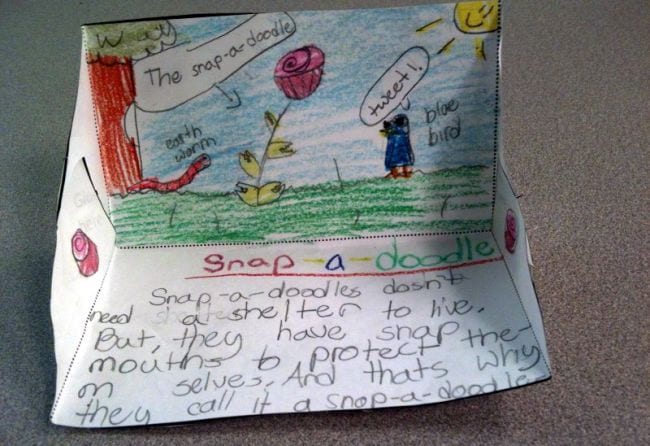 The snap-a-doodle
tweet!
blue
bird
earth
worm
Snap-a-doodle
Snap-a-doodles dosn't
need a shelter to live.
But, they have snap
mouths to protect the-
m selves. And thats why
they call it a snap-a-doodle